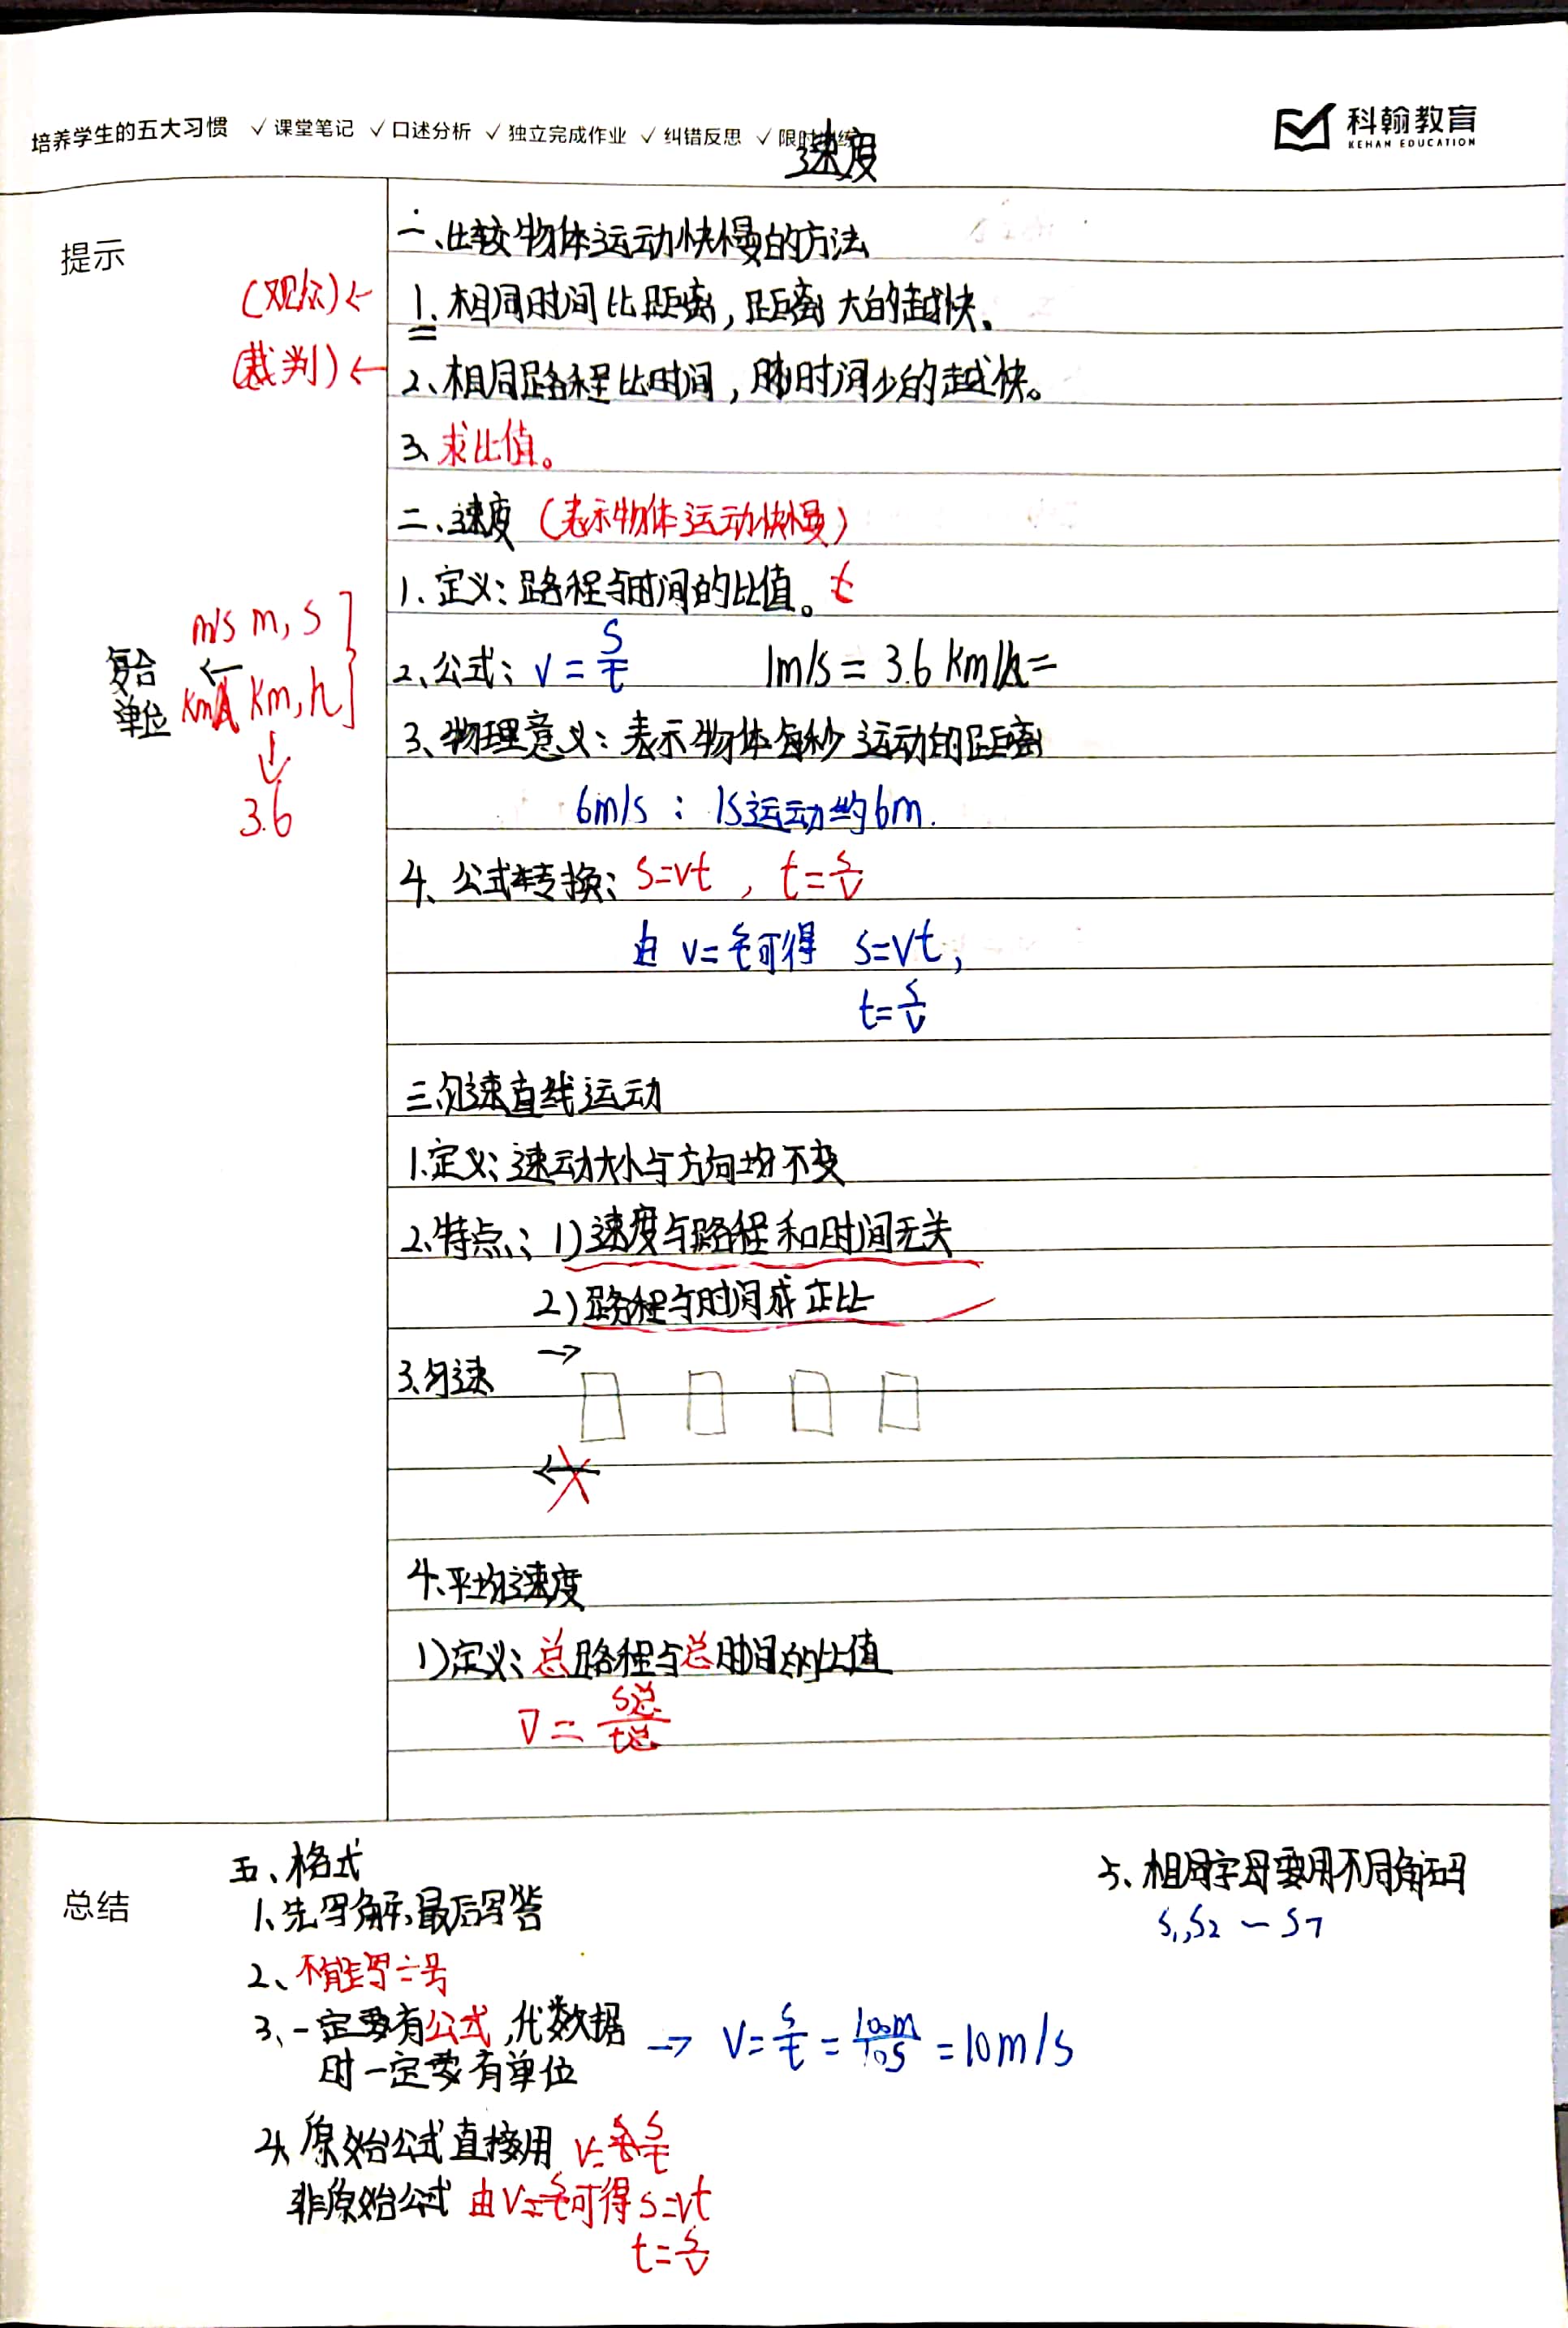 培养学生的五大习惯 ✓课堂笔记 ✓口述分析 ✓独立完成作业 ✓纠错反思 ✓限时训练
科翰教育
KEHAN EDUCATION
速度
提示
一、比较物体运动快慢的方法
(观众)← 1、相同时间比距离,距离大的越快、
(裁判)← 2、相同路程比时间,用时间少的越快。
3、求比值。
二、速度(表示物体运动快慢)
1、定义:路程与时间的比值。t
m/s m, s
复合单位 ←
km/h km, h
↓
3.6
2、公式:v = s/t 1m/s = 3.6 km/h=
3、物理意义:表示物体每秒运动的距离
6m/s : 1s运动约6m.
4、公式转换:s=vt , t=s/v
由 v=s/t可得 s=vt,
t=s/v
三、匀速直线运动
1.定义:速动大小与方向均不变
2、特点:1)速度与路程和时间无关
2)路程与时间成正比
3、匀速 →
←
4、平均速度
1)定义:总路程与总时间的比值
v̅ = s总/t总
总结
五、格式
1、先写解,最后写答
2、不能写∴号
3、一定要有公式,代数据
时一定要有单位
→ v=s/t = 100m/10s = 10m/s
4、原始公式直接用 v=s/t
非原始公式 由v=s/t可得s=vt
t=s/v
5、相同字母要用不同角码
s₁,s₂ — s₇